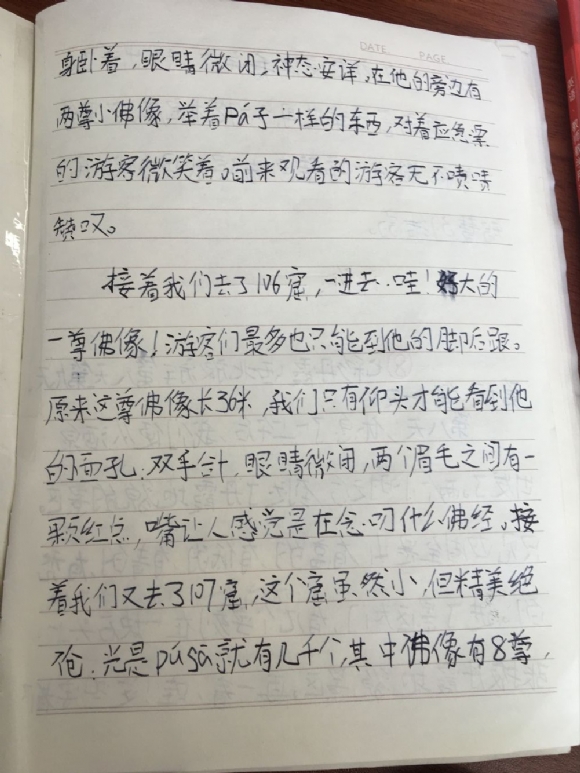 DATE PAGE
身卧着，眼睛微闭，神态安详，在他的旁边有
两尊小佛像，举着pá子一样的东西，对着应急票
的游客微笑着。前来观看的游客无不啧啧
镜叹。
接着我们去了106窟，一进去，哇！好大的
一尊佛像！游客们最多也只能到他的脚后跟。
原来这尊佛像长36米，我们只有仰头才能看到他
的面孔：双手合十，眼睛微闭，两个眉毛之间有一
颗红点，嘴让人感觉是在念叨什么佛经。接
着我们又去了107窟，这个窟虽然小，但精美绝
伦：光是pú sà就有几千个，其中佛像有8尊，